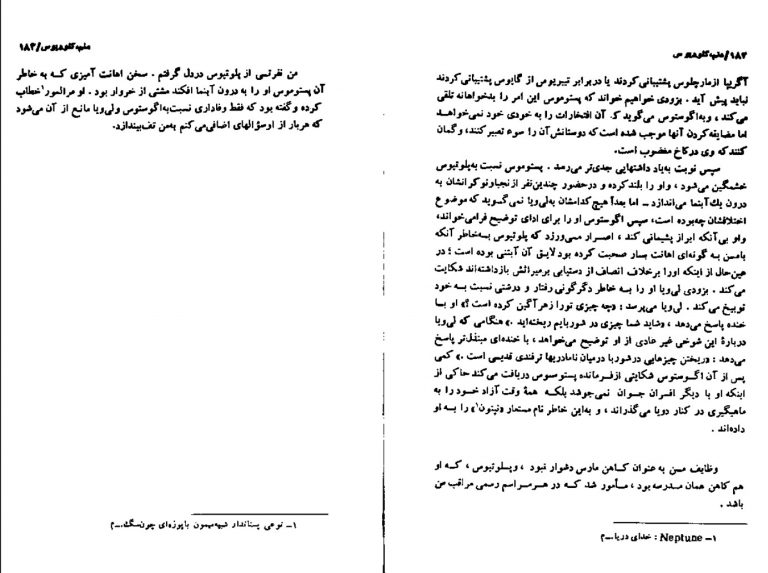 ۱۸۲/منم کلودیوس
آگریپا ازمارچلوس پشتیبانی کردند یا دربرابر تیبریوس از گایوس پشتیبانی کردند
نباید پیش آید. بزودی خواهیم خواند که پستوموس این امر را بدخواهانه تلقی
می‌کند، وبه‌اگوستوس می‌گوید که آن افتخارات را به خودی خود نمی‌خواهد
اما مضایقه‌کردن آنها موجب شده است که دوستانش آن را سوء تعبیر کنند، و گمان
کنند که وی در کاخ مغضوب است.
سپس نوبت به‌یاد داشتهایی جدی‌تر می‌رسد. پستوموس نسبت به‌پلوتیوس
خشمگین می‌شود، واو را بلند کرده و درحضور چندین‌نفر از نجبا و نوکرانشان به
درون یك آبنما می‌اندازد ــ اما بعداً هیچ کدامشان به‌لی‌ویا نمی‌گوید که موضوع
اختلافشان چه‌بوده است، سپس اگوستوس او را برای ادای توضیح فرامی‌خواند،
واو بی‌آنکه ابراز پشیمانی کند، اصرار می‌ورزد که پلوتیوس به‌خاطر آنکه
بامن به گونه‌ای اهانت بار صحبت کرده بود لایق آن آبتنی بوده است؛ در
عین‌حال از اینکه اورا برخلاف انصاف از دستیابی برمیراثش بازداشته‌اند شکایت
می‌کند. بزودی لی‌ویا او را به خاطر دگرگونی رفتار و درشتی نسبت به خود
توبیخ می‌کند. لی‌ویا می‌پرسد: «چه چیزی تورا زهرآگین کرده است؟» او با
خنده پاسخ می‌دهد، «شاید شما چیزی در شوربایم ریخته‌اید.» هنگامی که لی‌ویا
دربارهٔ این شوخی غیر عادی از او توضیح می‌خواهد، با خنده‌ای مبتذل‌تر پاسخ
می‌دهد: «ریختن چیزهایی در شوربا درمیان نامادریها ترفندی قدیمی است.» کمی
پس از آن اگوستوس شکایتی ازفرمانده پستوموس دریافت می‌کند حاکی از
اینکه او با دیگر افسران جوان نمی‌جوشد بلکه همهٔ وقت آزاد خود را به
ماهیگیری در کنار دریا می‌گذراند، و به‌این خاطر نام مستعار «نپتون۱» را به او
داده‌اند.
وظایف من به عنوان کاهن مارس دشوار نبود، وپلوتیوس، که او
هم کاهن همان مدرسه بود، مأمور شد که در هر مراسم رسمی مراقب من
باشد.
۱ــ Neptune : خدای دریا.ــ م
منم کلودیوس/۱۸۳
من نفرتی از پلوتیوس دردل گرفتم. سخن اهانت آمیزی که به خاطر
آن پستوموس او را به درون آبنما افکند مشتی از خروار بود. او مرا لمور۱ خطاب
کرده وگفته بود که فقط وفاداری نسبت به‌اگوستوس ولی‌ویا مانع از آن می‌شود
که هربار از اوسؤالهای اضافی‌می‌کنم به‌من تف‌بیندازد.
۱ــ نوعی پستاندار شبیه‌میمون باپوزه‌ای چون‌سگ.ــ م